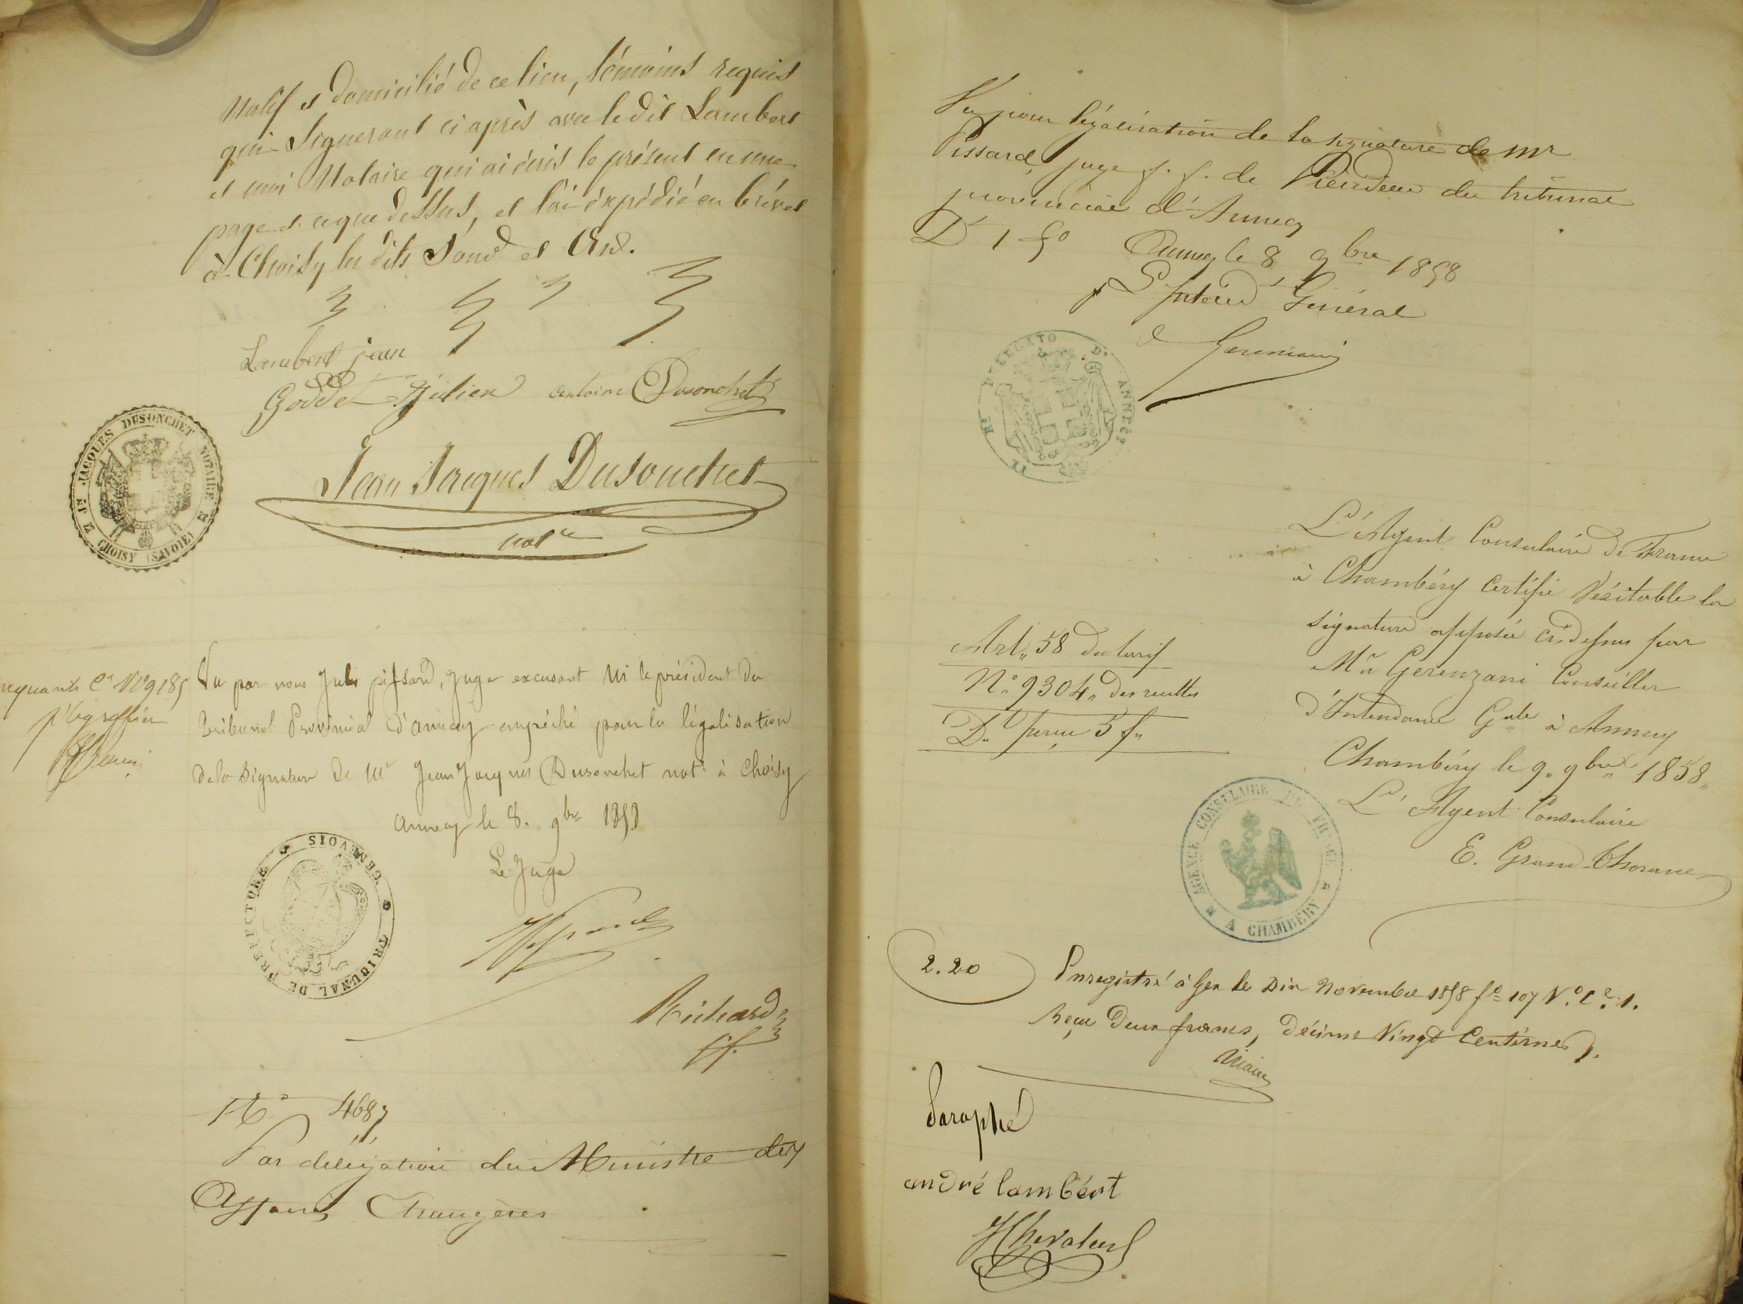 natif et domicilié de ce lieu, témoins requis
qui signeront ci après avec le dit Lambert
et moi Notaire qui ai écris le présent en une
page et ce que dessus, et l'ai expédié en brévet
à Choisy les dits jour et an.
Lambert jean
Goddet Julien antoine Dusonchet
Jean Jacques Dusonchet
not.re
E. Me JACQUES DESONCHET NOTAIRE
CHOISY (SAVOIE)
Vu par nous Jules pissard, Juge excusant Mr le président du
tribunal Provincial d'annecy empêché pour la légalisation
de la signature de Me Jean Jacques Dusonchet not.e à Choisy
annecy le 8. 9bre 1858
Le Juge
TRIBUNAL DE PREFECTURE
GENEVOIS
Richard
No 4687
Par délégation du Ministre des
Affaires Etrangères
Vu pour légalisation de la signature de Mr
Pissard, juge f. f. de Président du tribunal
provincial d'Annecy
Dt 1 50
Annecy le 8 9bre 1858
Général
L'Agent Consulaire de France
à Chambéry certifie Véritable la
signature apposée ci-dessus par
Mr Gerenzani Conseiller
d'Intendance Gale à Annecy
Chambéry le 9. 9bre 1858.
L'Agent Consulaire
E. Grand Thorane
Art. 58 du tarif
No 9304
Dt perçu 3 f.
AGENCE CONSULAIRE DE FRANCE
A CHAMBÉRY
2.20
Enregistré à Gex le Dix Novembre 1858 fo 107 Vo Ce 1.
Reçu Deux francs, Décime Vingt Centimes.
Paraphé
andré lambért
JChevalier